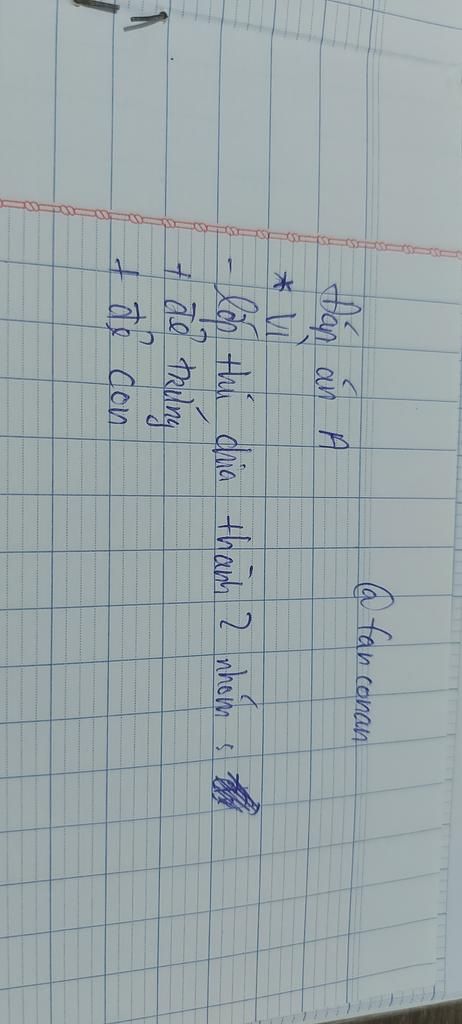 @ fan conan
Đáp án A
* Vì
- Lớp thú chia thành 2 nhóm :
+ đẻ trứng
+ đẻ con